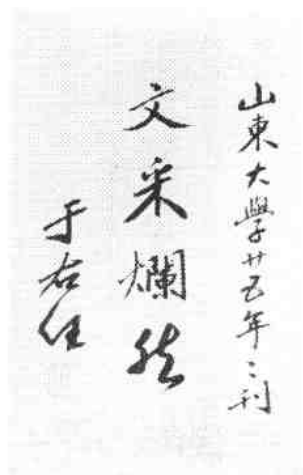 山東大學廿五年〻刊
文采爛然
于右任